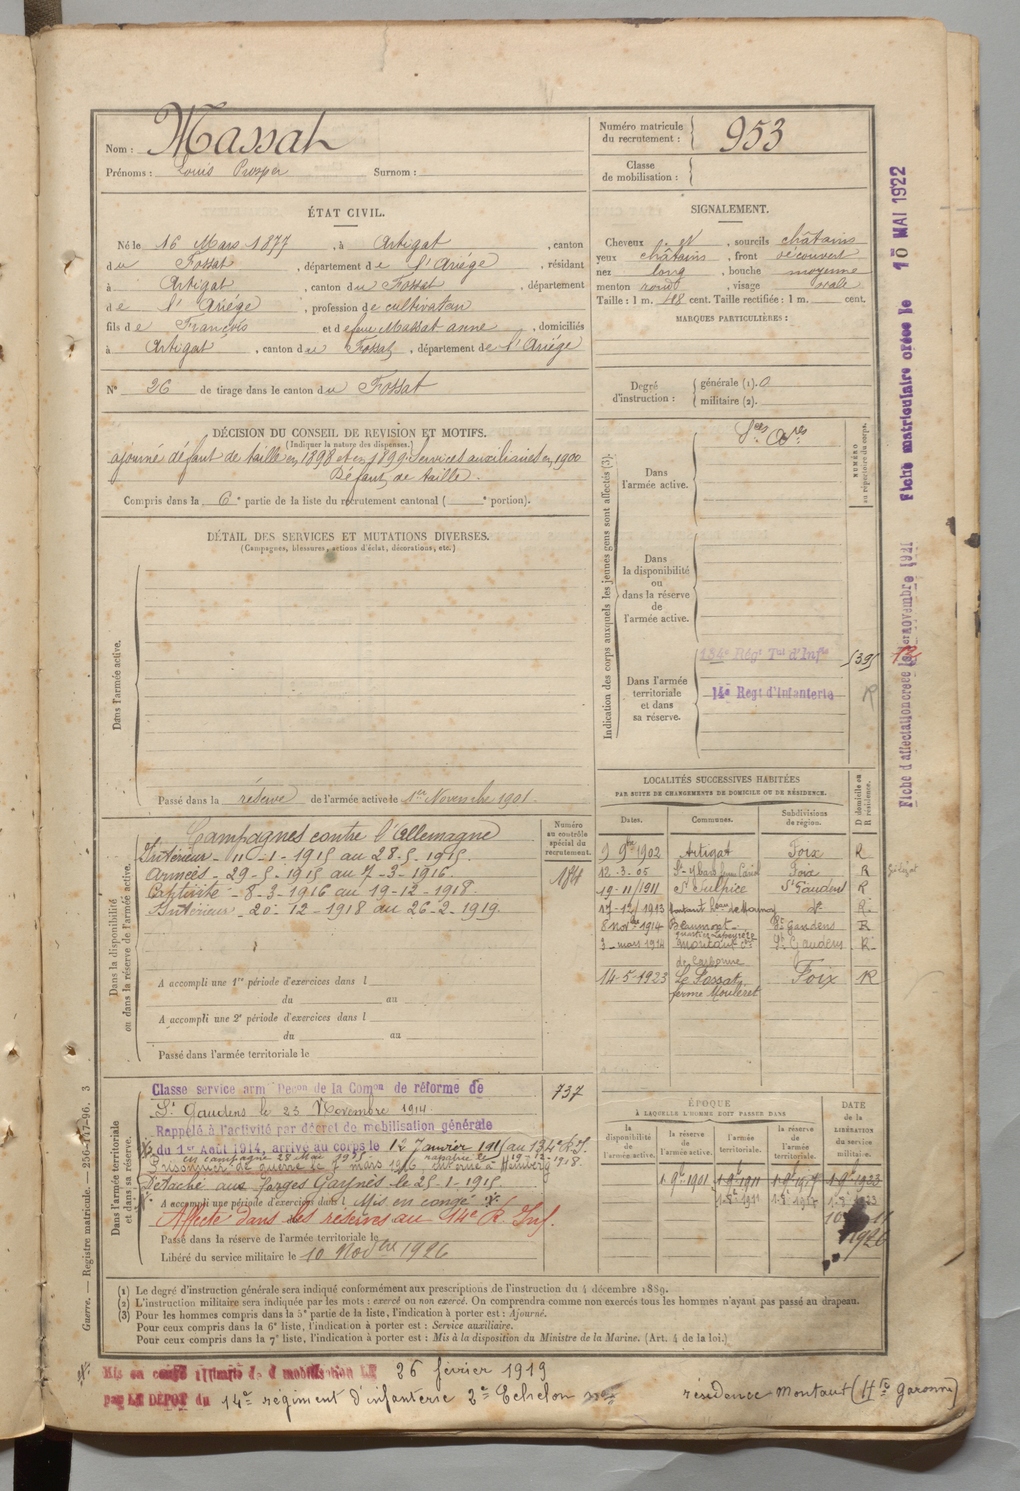 Nom : Massat
Prénoms : Louis Prosper Surnom :
Numéro matricule du recrutement : 953
Classe de mobilisation :
ÉTAT CIVIL.
Né le 16 Mars 1877, à Artigat, canton
du Fossat, département de l'Ariége, résidant
à Artigat, canton du Fossat, département
de l'Ariége, profession de cultivateur
fils de François et de feue Massat anne, domiciliés
à Artigat, canton du Fossat, département de l'Ariége
N° 26 de tirage dans le canton du Fossat
SIGNALEMENT.
Cheveux , sourcils châtains
yeux châtains, front découvert
nez long, bouche moyenne
menton rond, visage ovale
Taille : 1 m. cent. Taille rectifiée : 1 m. cent.
MARQUES PARTICULIÈRES :
Degré d'instruction : générale (1). 0
militaire (2).
DÉCISION DU CONSEIL DE REVISION ET MOTIFS.
(Indiquer la nature des dispenses.)
ajourné défaut de taille en 1898 et en 1899. Services auxiliaires en 1900
Défaut de taille.
Compris dans la 6e partie de la liste du recrutement cantonal ( e portion).
DÉTAIL DES SERVICES ET MUTATIONS DIVERSES.
(Campagnes, blessures, actions d'éclat, décorations, etc.)
Dans l'armée active.
Passé dans la réserve de l'armée active le 1er Novembre 1901.
Indication des corps auxquels les jeunes gens sont affectés (3).
NUMÉRO au répertoire du corps.
Dans l'armée active.
Dans la disponibilité ou dans la réserve de l'armée active.
Dans l'armée territoriale et dans sa réserve.
134e Régt Tal d'Infie
14e Regt d'Infanterie R
Dans la disponibilité ou dans la réserve de l'armée active.
Campagnes contre l'Allemagne
Intérieur - 11-1-1915 au 28-5-1915.
Armées - 29-5-1915 au 7-3-1916.
Captivité - 8-3-1916 au 19-12-1918.
Intérieur - 20-12-1918 au 26-2-1919.
A accompli une 1re période d'exercices dans l
du au
A accompli une 2e période d'exercices dans l
du au
Passé dans l'armée territoriale le
Numéro au contrôle spécial du recrutement.
LOCALITÉS SUCCESSIVES HABITÉES
PAR SUITE DE CHANGEMENTS DE DOMICILE OU DE RÉSIDENCE.
Dates. Communes. Subdivisions de région. D domicile ou R résidence.
9 9bre 1902 Artigat Foix R
12-3-05 Foix R
19-11/1911 St Sulpice St Gaudens R
17-12/1913 do R
8 nobre 1914 Beaumont St Gaudens R
3 mars 1921 Montaut St Gaudens R
14-5-1923 Le Fossat ferme Mouleret Foix R
Dans l'armée territoriale et dans sa réserve.
Classe service armé Décon de la Comon de réforme de
St Gaudens le 23 Novembre 1914.
Rappelé à l'activité par décret de mobilisation générale
du 1er Août 1914, arrivé au corps le 12 Janvier 1915 au 134e R.I.
en campagne 28 Mai 1915 - rapatrié le 19-12-1918.
Prisonnier de guerre le 7 mars 1916, interné à
Détaché aux Forges le 25-1-1915.
A accompli une période d'exercices dans l Mis en congé
Affecté dans les réserves au 14e R. Inf.
Passé dans la réserve de l'armée territoriale le
Libéré du service militaire le 10 Novbre 1926
737
ÉPOQUE
À LAQUELLE L'HOMME DOIT PASSER DANS
la disponibilité de l'armée active. la réserve de l'armée active. l'armée territoriale. la réserve de l'armée territoriale.
DATE de la LIBÉRATION du service militaire.
1. 9bre 1901 1. 9bre 1911 1. 9bre 1917 1. 9bre 1923
1926
(1) Le degré d'instruction générale sera indiqué conformément aux prescriptions de l'instruction du 4 décembre 1889.
(2) L'instruction militaire sera indiquée par les mots : exercé ou non exercé. On comprendra comme non exercés tous les hommes n'ayant pas passé au drapeau.
(3) Pour les hommes compris dans la 5e partie de la liste, l'indication à porter est : Ajourné.
Pour ceux compris dans la 6e liste, l'indication à porter est : Service auxiliaire.
Pour ceux compris dans la 7e liste, l'indication à porter est : Mis à la disposition du Ministre de la Marine. (Art. 4 de la loi.)
Mis en congé illimité de démobilisation LE 26 février 1919
par LE DÉPOT du 14e régiment d'infanterie 2e Echelon résidence Montaut (Hte Garonne)
Guerre. — Registre matricule. — 256-147-96. 3
Fiche matriculaire créée le 10 MAI 1922
Fiche d'affectation créée le 1er novembre 1921